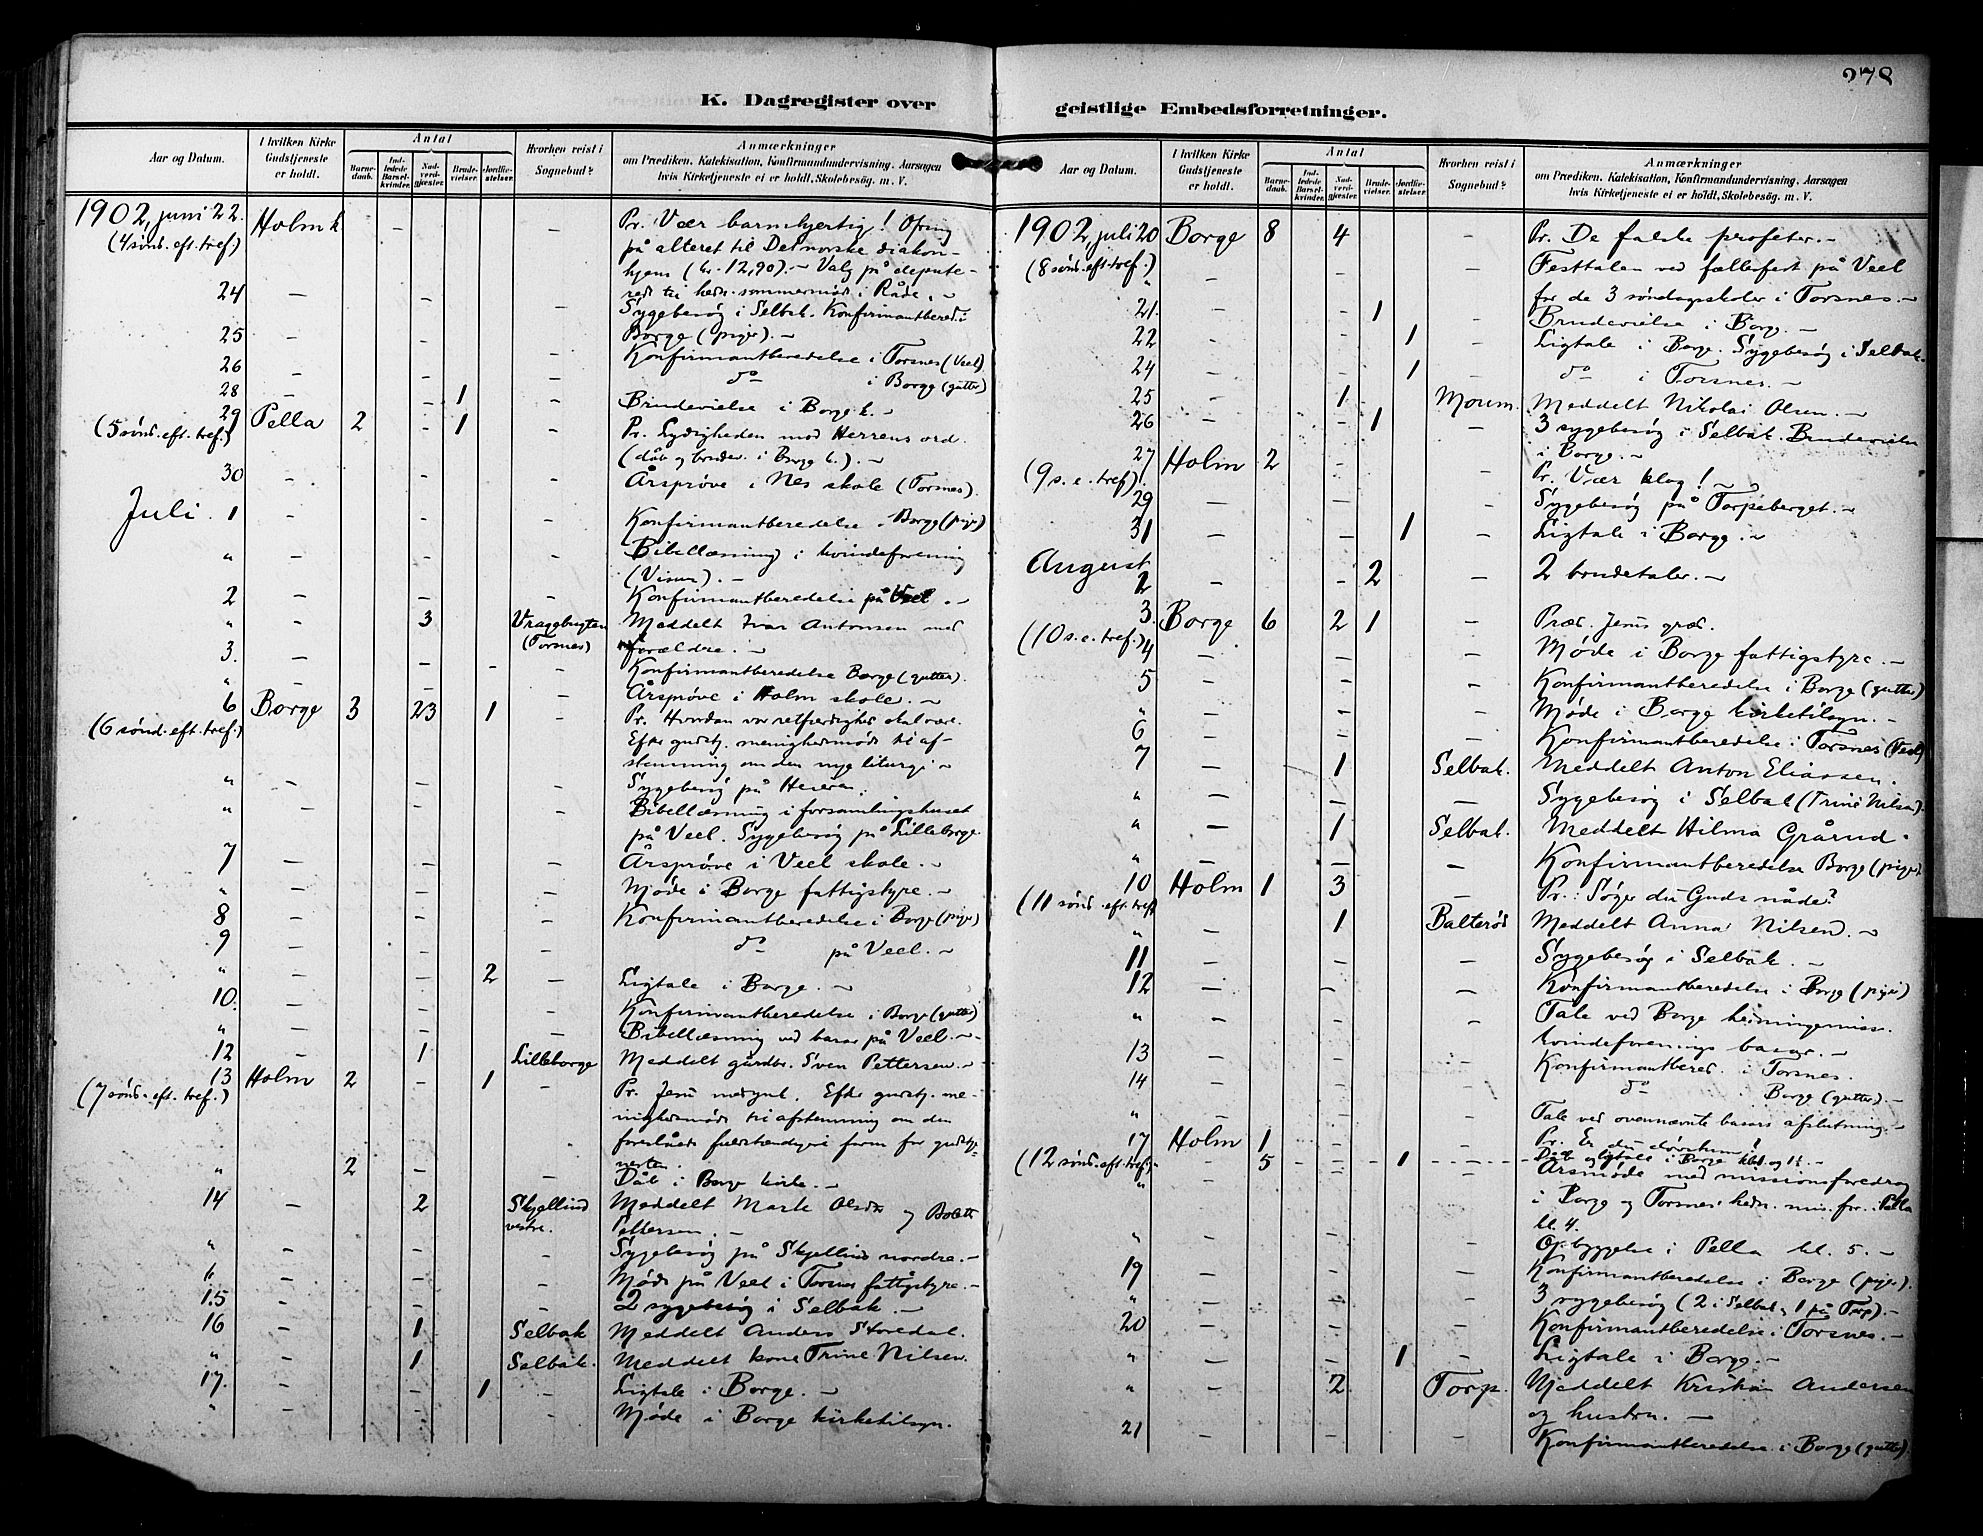 278
K. Dagregister over
Aar og Datum.
I hvilken Kirke Gudstjeneste er holdt.
Antal
Barnedaab.
Indledede Barselkvinder.
Nadverdgjester.
Brudevielser.
Jordfæstelser.
Hvorhen reist i Sognebud?
Anmærkninger
om Prædiken, Katekisation, Konfirmandundervisning, Aarsagen
hvis Kirketjeneste ei er holdt, Skolebesøg. m. V.
1902, juni 22. Holm k - - Pr. Vær barmhjertig! Ofring
(4 sønd. eft. tref.) på alteret til Det norske diakon-
hjem (kr. 12,90). - Valg på depute-
rede til hedn. sommermøde i Råde. -
24 - - - Sygebesøg i Selbak. Konfirmantbered. i
Borge (piger). -
25 - - - Konfirmantberedelse i Torsnes (Veel)
26 - - - do i Borge (gutter)
28 - - 1 - Brudevielse i Borge k. -
29 Pella 2 - 1 - Pr. Lydigheden mod Herrens ord.
(5 sønd. eft. tref.) (dåb og brudev. i Borge k.). -
30 - - - Årsprøve i Nes skole (Torsnes).
Juli. 1 - - - Konfirmantberedelse i Borge (piger)
" - - - Bibellæsning i kvindeforening
(Visur). -
2 - - - Konfirmantberedelse på Veel. -
" - 3 Vragebugten (Torsnes) Meddelt Ivar Antonsen med
forældre. -
3. - - - - Konfirmantberedelse Borge (gutter).
" - - - Årsprøve i Holm skole. -
6 Borge 3 23 1 - Pr. Hvordan vor retfærdighed skal være.
(6 sønd. eft. tref.) Efter gudstj. menighedsmøde til af-
stemning om den nye liturgi -
" - - - Sygebesøg på Heieren.
" - - Bibellæsning i forsamlingshuset
på Veel. Sygebesøg på Lilleborge.
7 - - - Årsprøve i Veel skole. -
" - - - Møde i Borge fattigstyre. -
8 - - - Konfirmantberedelse i Borge (piger)
9 - - do på Veel. -
" - - 2 - Ligtale i Borge. -
10. - - - Konfirmantberedelse i Borge (gutter)
" - - - Bibellæsning ved basar på Veel. -
12 - 1 Lilleborge Meddelt gårdbr. Sven Pettersen. -
13 Holm 2 - 1 - Pr. Jesu medynk. Efter gudstj. me-
(7 sønd. eft. tref.) nighedsmøde til afstemning om den
foreslåede fuldstændigere form for gudstje-
nesten.
" 2 - - Dåb i Borge kirke. -
14 - 2 Skjellind vestre. Meddelt Marte Olsdr og Bolette
Pettersen. -
" - - - Sygebesøg på Skjellind nordre. -
" - - - Møde på Veel i Torsnes fattigstyre. -
15 - - - 2 sygebesøg i Selbak. -
16 - 1 Selbak Meddelt Anders Storedal.
" - 1 Selbak. Meddelt kone Trine Nilsen.
17. - - 1 - Ligtale i Borge. -
" - - - Møde i Borge kirketilsyn.
geistlige Embedsforretninger.
Aar og Datum.
I hvilken Kirke Gudstjeneste er holdt.
Antal
Barnedaab.
Indledede Barselkvinder.
Nadverdgjester.
Brudevielser.
Jordfæstelser.
Hvorhen reist i Sognebud?
Anmærkninger
om Prædiken, Katekisation, Konfirmandundervisning, Aarsagen
hvis Kirketjeneste ei er holdt, Skolebesøg. m. V.
1902, juli 20 Borge 8 4 - Pr. De falske profeter. -
(8 sønd. eft. tref.) " - - - Festtalen ved fællesfest på Veel
for de 3 søndagsskoler i Torsnes. -
21. - - 1 - Brudevielse i Borge. -
22 - - 1 - Ligtale i Borge. Sygebesøg i Selbak.
24 - - 1 - do i Torsnes. -
25 - 1 Moum. Meddelt Nikolai Olsen. -
26 - - 1 - 3 sygebesøg i Selbak. Brudevielse
i Borge. -
27 Holm 2 - - Pr. Vær klog! -
(9 s. e. tref.)
29 - - - Sygebesøg på Torpeberget. -
31 - - 1 - Ligtale i Borge. -
August
2 - - 2 - 2 brudetaler. -
3. Borge 6 2 1 - Præd. Jesus græd.
(10 s. e. tref.) 4 - - - Møde i Borge fattigstyre. -
5 - - - Konfirmantberedelse i Borge (gutter)
" - - - Møde i Borge kirketilsyn. -
6 - - - Konfirmantberedelse i Torsnes (Veel)
7 - 1 Selbak. Meddelt Anton Eliassen.
" - - - Sygebesøg i Selbak (Trine Nilsen).
" - 1 Selbak. Meddelt Hilma Grårud.
" - - - Konfirmantberedelse Borge (piger).
10 Holm 1 3 - Pr.: Søger du Guds nåde?
(11 sønd. eft. tref.
" - 1 Balterød Meddelt Anna Nilsen. -
11 - - - Sygebesøg i Selbak. -
12 - - - Konfirmantberedelse i Borge (piger)
" - - - Tale ved Borge hedningemiss.
kvindeforenings basar. -
13 - - - Konfirmantbered. i Torsnes.
14 - - - do Borge (gutter). -
" - - - Tale ved ovennævnte basars afslutning. -
17 Holm 1 - - Pr. Er du døvstum?
(12 sønd. eft. tref.) - 5 - - 1 - Dåb og ligtale i Borge
" - - - Årsmøde med missionsforedrag
i Borge og Torsnes hedn. mis. for. i Pella
kl. 4.
" - - - Opbyggelse i Pella kl. 5. -
19 - - - Konfirmantberedelse i Borge (piger).
" - - - 3 sygebesøg (2 i Selbak, 1 på Torp). -
20 - - - Konfirmantberedelse i Torsnes. -
" - - 1 - Ligtale i Borge. -
" - 2 Torp. Meddelt Kristian Andersen
og hustru. -
21 - - - Konfirmantberedelse i Borge (gutter).